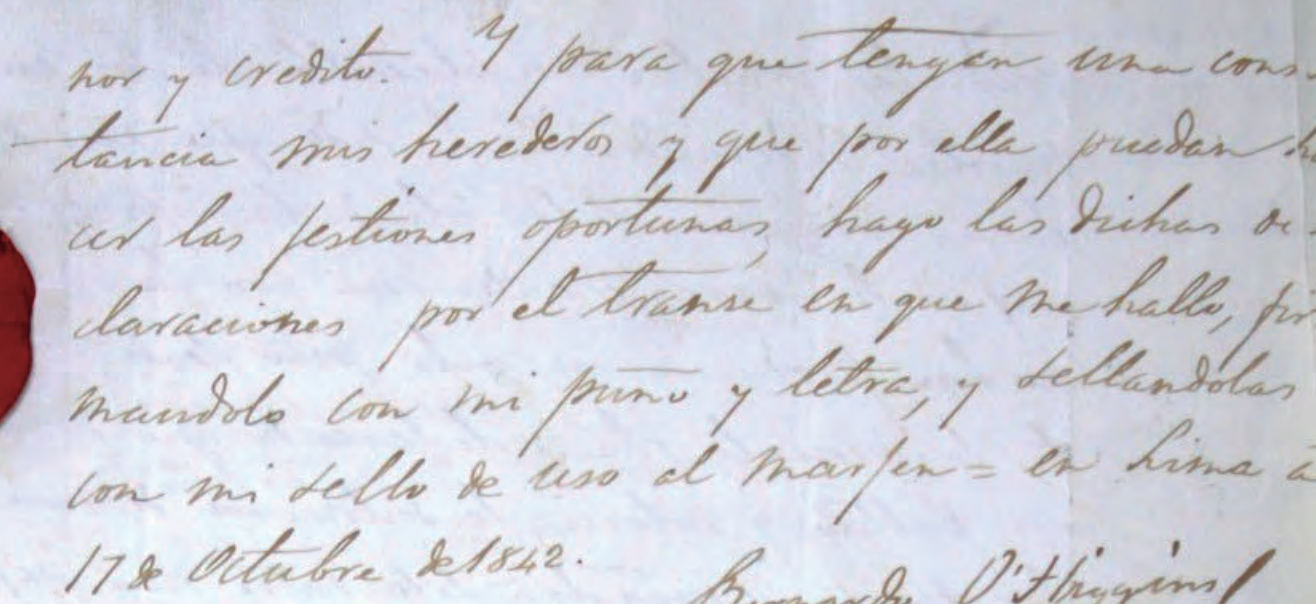 nor y credito. Y para que tengan una cons-
tancia mis herederos y que por ella puedan ha
cer las jestiones oportunas, hago las dichas de-
claraciones por el transe en que me hallo, fir
mandolo con mi puño y letra, y sellandolas
con mi sello de uso al marjen = en Lima a
17 de Octubre de 1842.
Bernardo O'Higgins